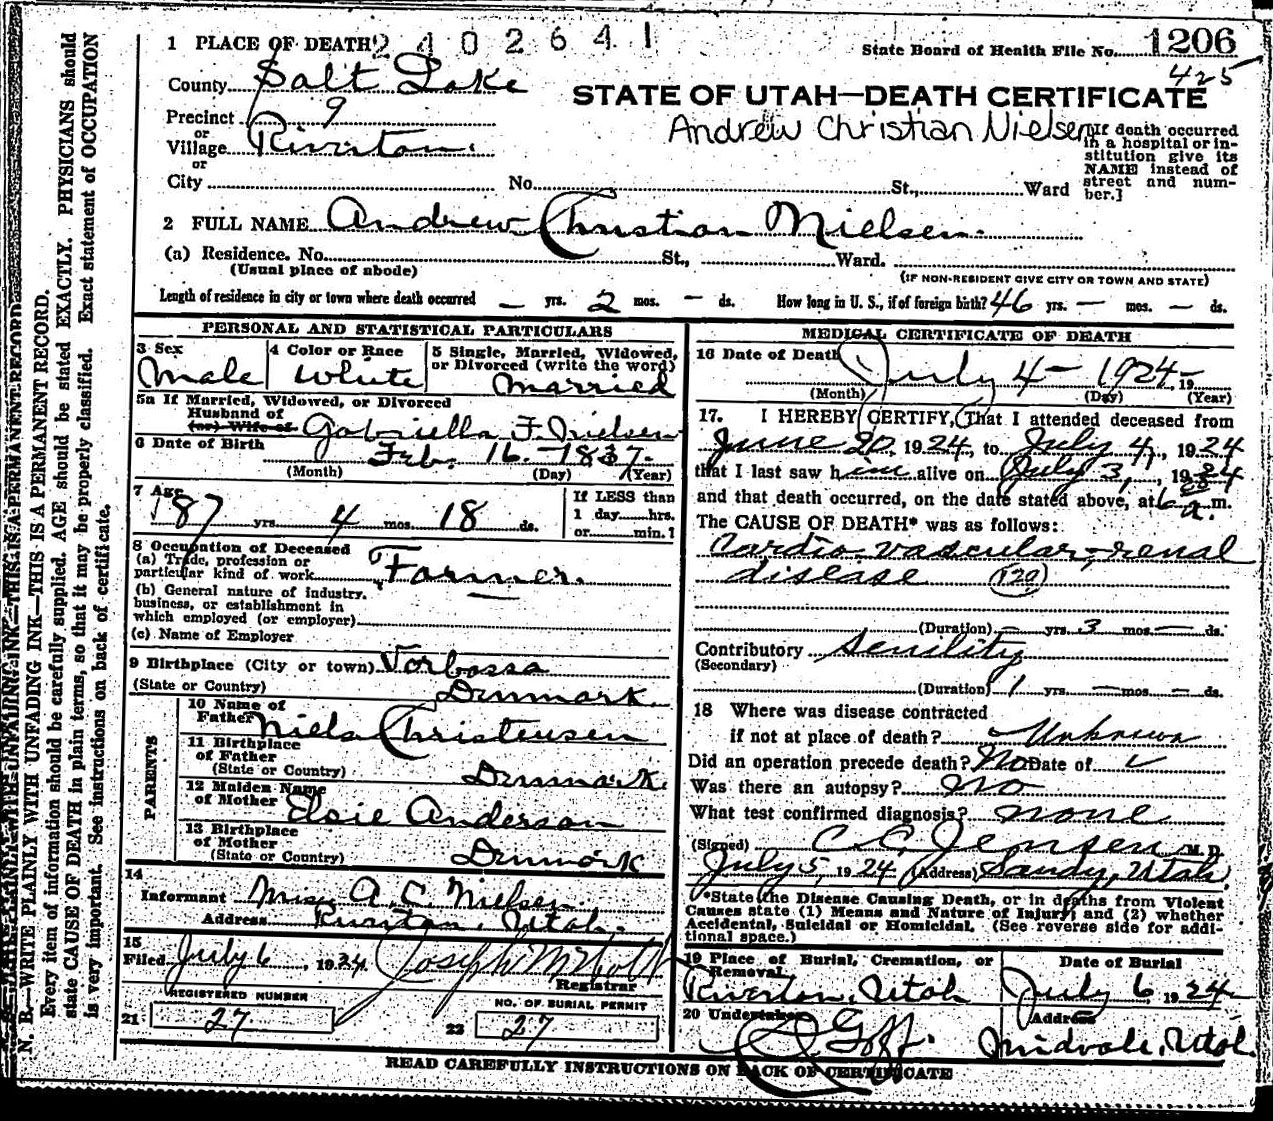 1 PLACE OF DEATH 2402641
State Board of Health File No. 1206
425
County Salt Lake
STATE OF UTAH—DEATH CERTIFICATE
Precinct 9
Andrew Christian Nielsen
or
Village Riverton.
or
City No. St., Ward
[If death occurred
in a hospital or in-
stitution give its
NAME instead of
street and num-
ber.]
2 FULL NAME Andrew Christian Nielsen.
(a) Residence. No. St., Ward.
(Usual place of abode)
(IF NON-RESIDENT GIVE CITY OR TOWN AND STATE)
Length of residence in city or town where death occurred — yrs. 2 mos. — ds. How long in U. S., if of foreign birth? 46 yrs. — mos. — ds.
PERSONAL AND STATISTICAL PARTICULARS
3 Sex
Male
4 Color or Race
White
5 Single, Married, Widowed,
or Divorced (write the word)
Married
5a If Married, Widowed, or Divorced
Husband of
(or) Wife of Gabriella F. Nielsen
6 Date of Birth Feb. 16 - 1837.
(Month) (Day) (Year)
7 Age
87 yrs. 4 mos. 18 ds.
If LESS than
1 day......hrs.
or......min.?
8 Occupation of Deceased
(a) Trade, profession or
particular kind of work Farmer.
(b) General nature of industry,
business, or establishment in
which employed (or employer)
(c) Name of Employer
9 Birthplace (City or town) Vorbossa
(State or Country) Denmark.
PARENTS
10 Name of
Father Niels Christensen
11 Birthplace
of Father
(State or Country) Denmark.
12 Maiden Name
of Mother Elsie Anderson
13 Birthplace
of Mother
(State or Country) Denmark
14
Informant Mrs. A. C. Nielsen.
Address Riverton, Utah.
15
Filed July 6, 1924.
Registrar
REGISTERED NUMBER
21 27
NO. OF BURIAL PERMIT
22 27
MEDICAL CERTIFICATE OF DEATH
16 Date of Death July 4 - 1924 - 19
(Month) (Day) (Year)
17. I HEREBY CERTIFY, That I attended deceased from
June 20, 1924, to July 4, 1924
that I last saw him alive on July 3, 1924
and that death occurred, on the date stated above, at 6 a.m.
The CAUSE OF DEATH* was as follows:
Cardio-vascular-renal
disease (129)
(Duration) — yrs. 3 mos. — ds.
Contributory Senility
(Secondary)
(Duration) 1 yrs. — mos. — ds.
18 Where was disease contracted
if not at place of death? Unknown
Did an operation precede death? No Date of
Was there an autopsy? No
What test confirmed diagnosis? none
(Signed) C. C. Jensen M. D.
July 5, 1924 (Address) Sandy, Utah.
*State the Disease Causing Death, or in deaths from Violent
Causes state (1) Means and Nature of Injury; and (2) whether
Accidental, Suicidal or Homicidal. (See reverse side for addi-
tional space.)
19 Place of Burial, Cremation, or
Removal
Riverton, Utah
Date of Burial
July 6 1924
20 Undertaker
Goff.
Address
Midvale, Utah.
READ CAREFULLY INSTRUCTIONS ON BACK OF CERTIFICATE
N. B.—WRITE PLAINLY WITH UNFADING INK—THIS IS A PERMANENT RECORD.
Every item of information should be carefully supplied. AGE should be stated EXACTLY. PHYSICIANS should
state CAUSE OF DEATH in plain terms, so that it may be properly classified. Exact statement of OCCUPATION
is very important. See instructions on back of certificate.